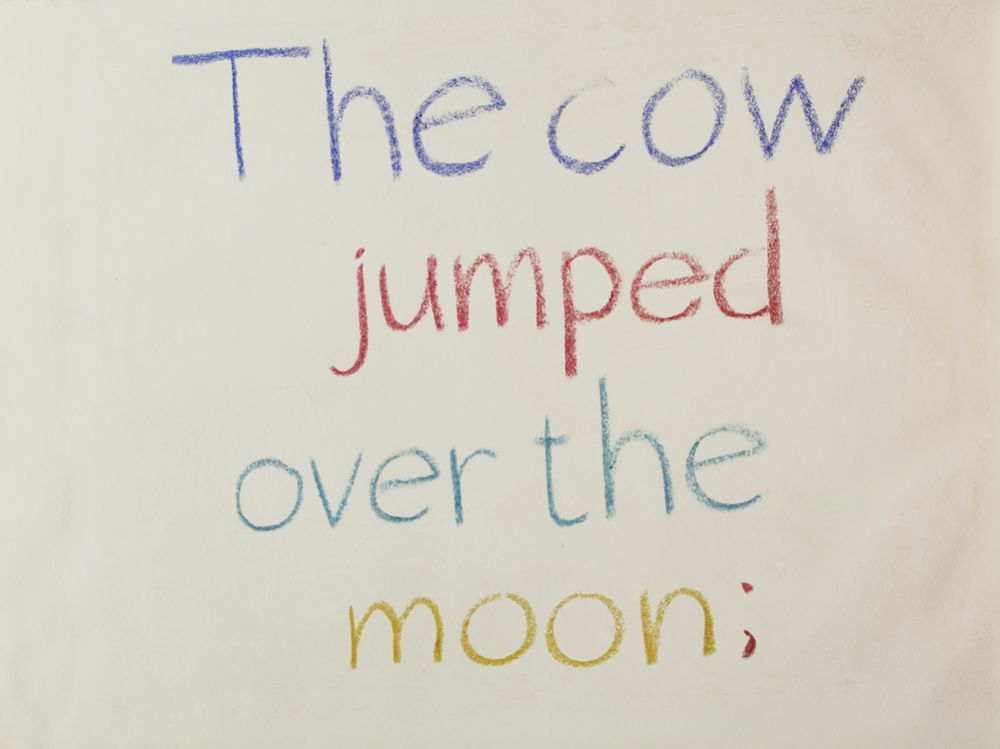 The cow
jumped
over the
moon;